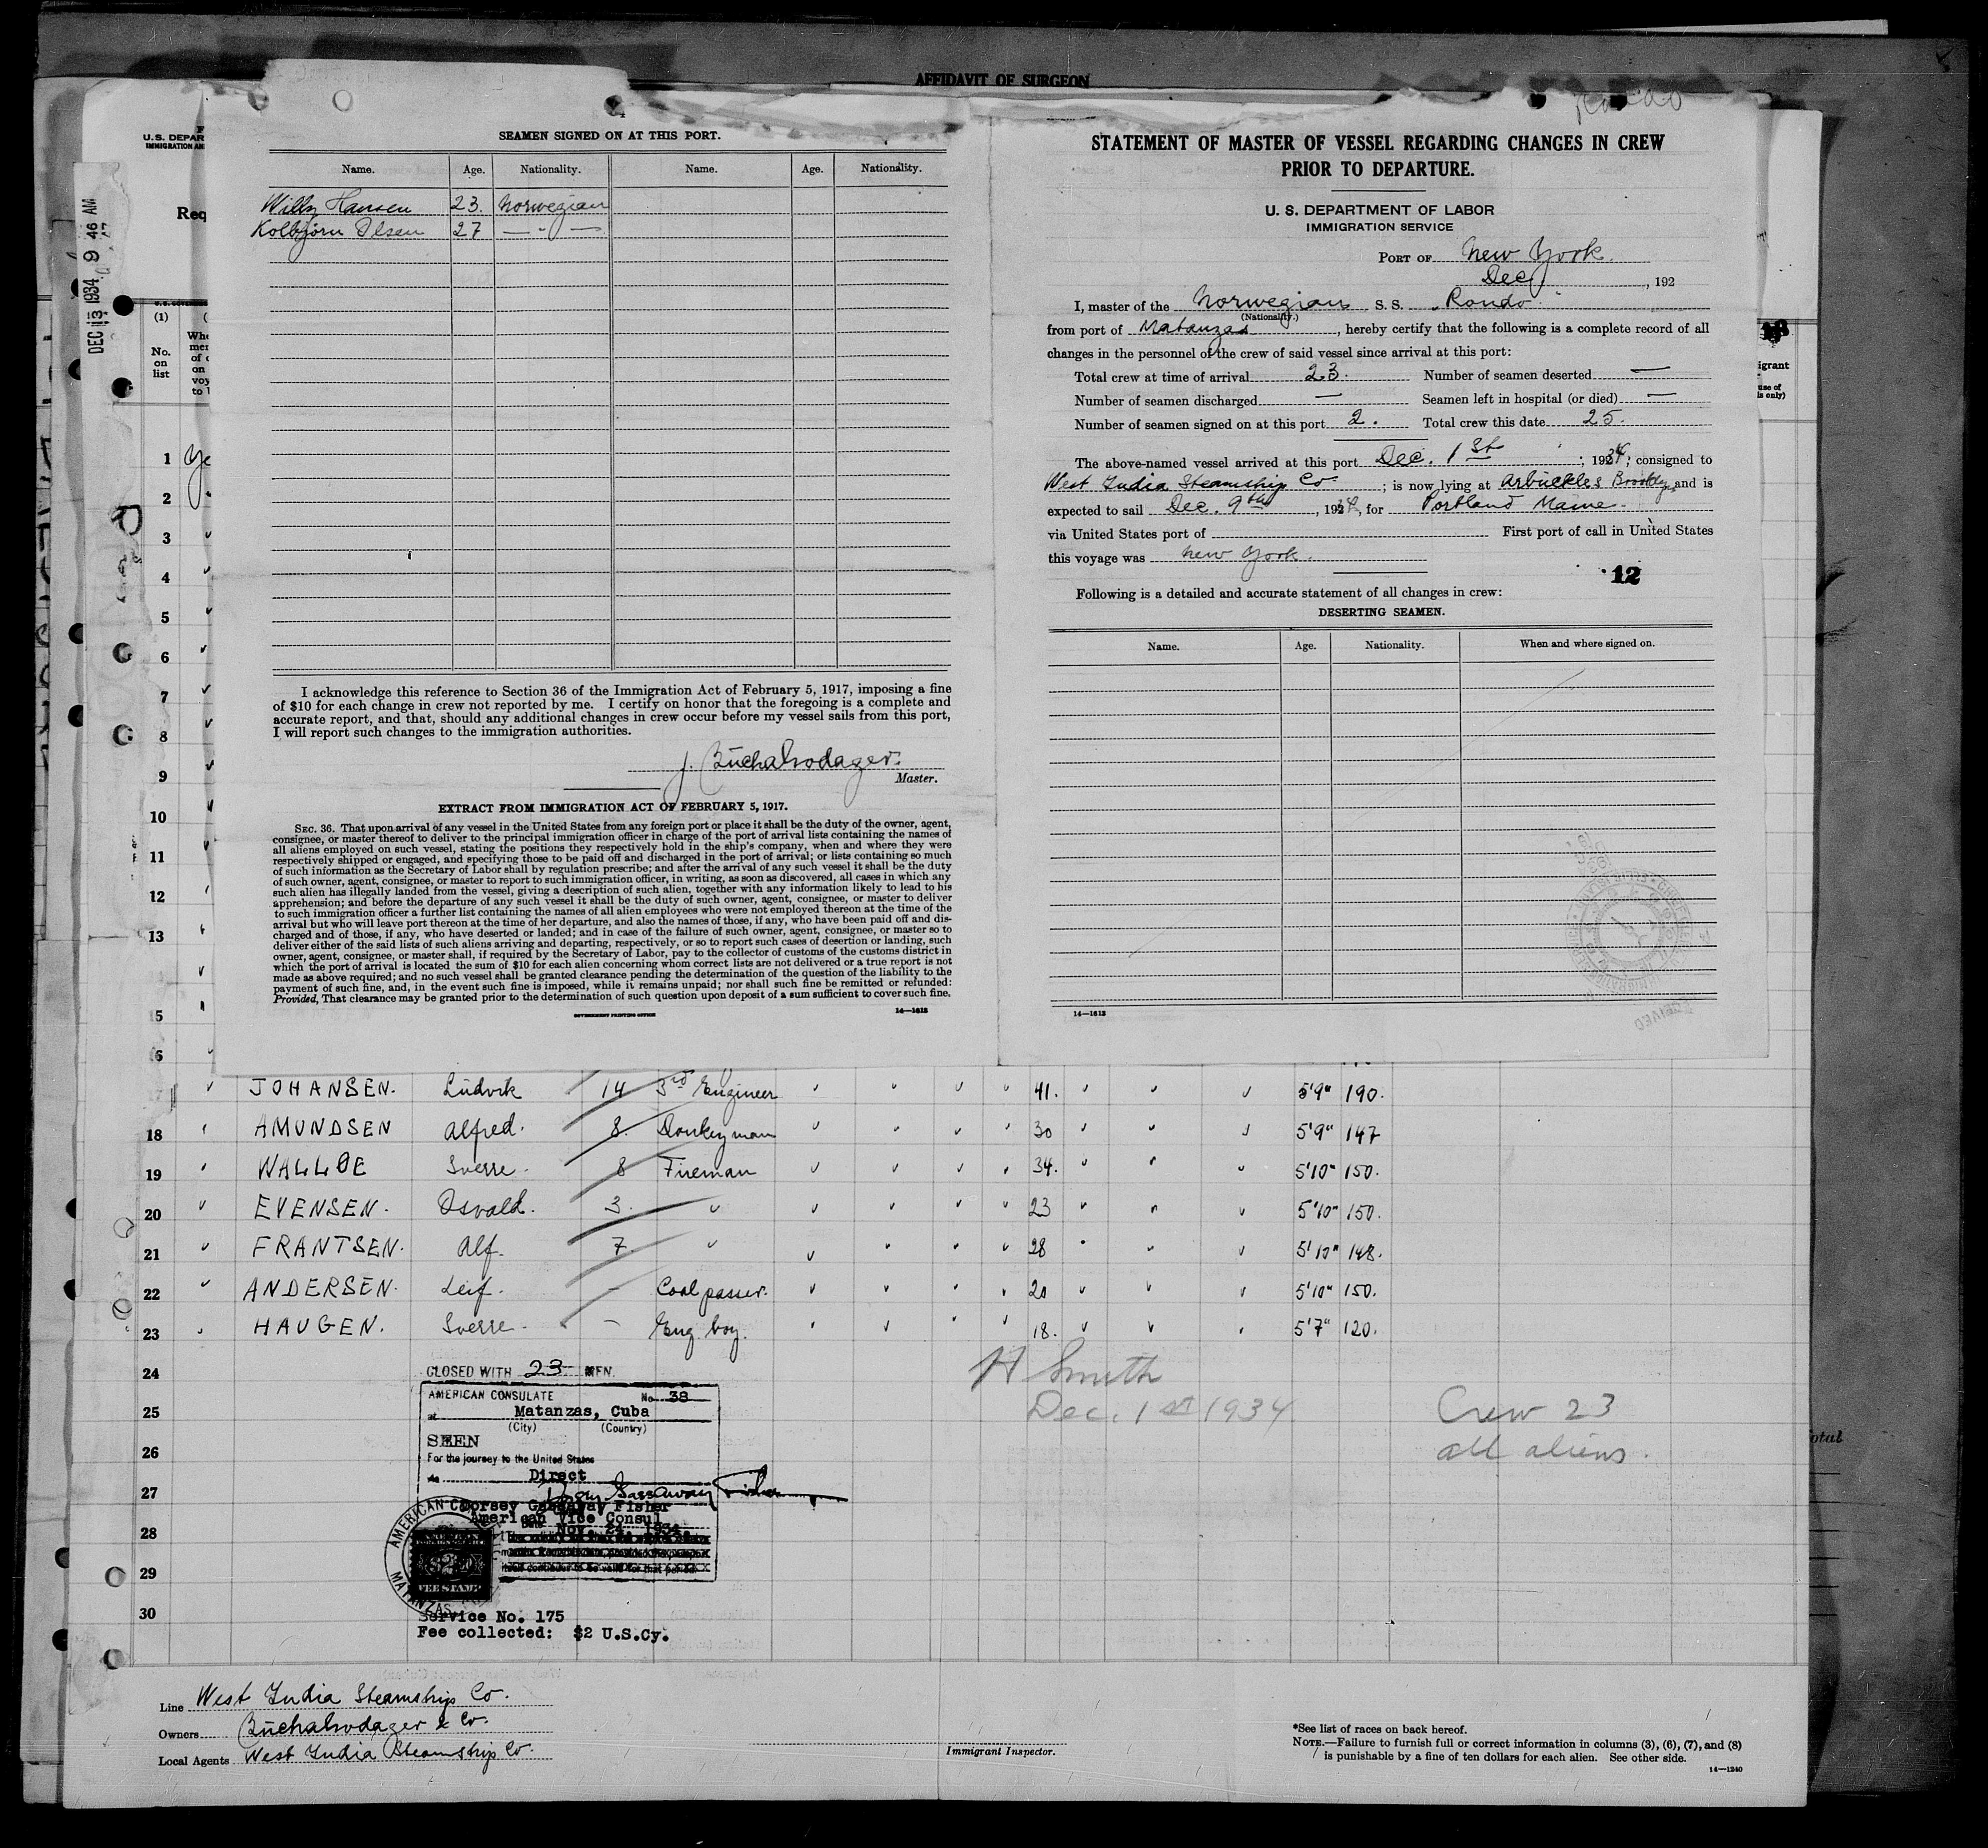 AFFIDAVIT OF SURGEON
U.S. DEPAR
IMMIGRATION AN
Req
DEC 13 1934 9 46 AM
(1)
No.
on
list
SEAMEN SIGNED ON AT THIS PORT.
Name. Age. Nationality. Name. Age. Nationality.
Willy Hansen 23. Norwegian
Kolbjörn Olsen 27 — " —
I acknowledge this reference to Section 36 of the Immigration Act of February 5, 1917, imposing a fine
of $10 for each change in crew not reported by me. I certify on honor that the foregoing is a complete and
accurate report, and that, should any additional changes in crew occur before my vessel sails from this port,
I will report such changes to the immigration authorities.
Master.
EXTRACT FROM IMMIGRATION ACT OF FEBRUARY 5, 1917.
SEC. 36. That upon arrival of any vessel in the United States from any foreign port or place it shall be the duty of the owner, agent,
consignee, or master thereof to deliver to the principal immigration officer in charge of the port of arrival lists containing the names of
all aliens employed on such vessel, stating the positions they respectively hold in the ship's company, when and where they were
respectively shipped or engaged, and specifying those to be paid off and discharged in the port of arrival; or lists containing so much
of such information as the Secretary of Labor shall by regulation prescribe; and after the arrival of any such vessel it shall be the duty
of such owner, agent, consignee, or master to report to such immigration officer, in writing, as soon as discovered, all cases in which any
such alien has illegally landed from the vessel, giving a description of such alien, together with any information likely to lead to his
apprehension; and before the departure of any such vessel it shall be the duty of such owner, agent, consignee, or master to deliver
to such immigration officer a further list containing the names of all alien employees who were not employed thereon at the time of the
arrival but who will leave port thereon at the time of her departure, and also the names of those, if any, who have been paid off and dis-
charged and of those, if any, who have deserted or landed; and in case of the failure of such owner, agent, consignee, or master so to
deliver either of the said lists of such aliens arriving and departing, respectively, or so to report such cases of desertion or landing, such
owner, agent, consignee, or master shall, if required by the Secretary of Labor, pay to the collector of customs of the customs district in
which the port of arrival is located the sum of $10 for each alien concerning whom correct lists are not delivered or a true report is not
made as above required; and no such vessel shall be granted clearance pending the determination of the question of the liability to the
payment of such fine, and, in the event such fine is imposed, while it remains unpaid; nor shall such fine be remitted or refunded:
Provided, That clearance may be granted prior to the determination of such question upon deposit of a sum sufficient to cover such fine.
GOVERNMENT PRINTING OFFICE 14—1613
STATEMENT OF MASTER OF VESSEL REGARDING CHANGES IN CREW
PRIOR TO DEPARTURE.
U. S. DEPARTMENT OF LABOR
IMMIGRATION SERVICE
PORT OF New York.
Dec , 192
I, master of the Norwegian S. S. "Rondo"
(Nationality.)
from port of Matanzas , hereby certify that the following is a complete record of all
changes in the personnel of the crew of said vessel since arrival at this port:
Total crew at time of arrival 23. Number of seamen deserted —
Number of seamen discharged — Seamen left in hospital (or died) —
Number of seamen signed on at this port 2. Total crew this date 25.
The above-named vessel arrived at this port Dec. 1st ; 1934; consigned to
West India Steamship Co ; is now lying at Arbuckles Brooklyn, and is
expected to sail Dec. 9th , 1934, for Portland Maine.
via United States port of First port of call in United States
this voyage was New York.
12
Following is a detailed and accurate statement of all changes in crew:
DESERTING SEAMEN.
Name. Age. Nationality. When and where signed on.
14—1613
1
2
3
4
5
6
7
8
9
10
11
12
13
17 JOHANSEN. Ludvik 14 3rd Engineer 41. 5'9" 190.
18 AMUNDSEN Alfred. 8. Donkeyman 30 5'9" 147
19 WALLOE Sverre. 8 Fireman 34. 5'10" 150.
20 EVENSEN. Osvald. 3. " 23 5'10" 150.
21 FRANTSEN. Alf. 7. " 28 5'10" 148.
22 ANDERSEN. Leif. – Coal passer. 20 5'10" 150.
23 HAUGEN. Sverre. – Eng. boy. 18. 5'7" 120.
24
25
26
27
28
29
30
CLOSED WITH 23 MEN.
AMERICAN CONSULATE No 38
at Matanzas, Cuba
(City) (Country)
SEEN
For the journey to the United States
Direct
Dorsey Gassaway Fisher
American Vice Consul
FEE STAMP
Service No. 175
Fee collected: $2 U.S.Cy.
H Smith
Dec. 1st 1934
Crew 23
all aliens.
Line West India Steamship Co.
Owners
Local Agents West India Steamship Co.
Immigrant Inspector.
*See list of races on back hereof.
NOTE.—Failure to furnish full or correct information in columns (3), (6), (7), and (8)
is punishable by a fine of ten dollars for each alien. See other side.
14—1240